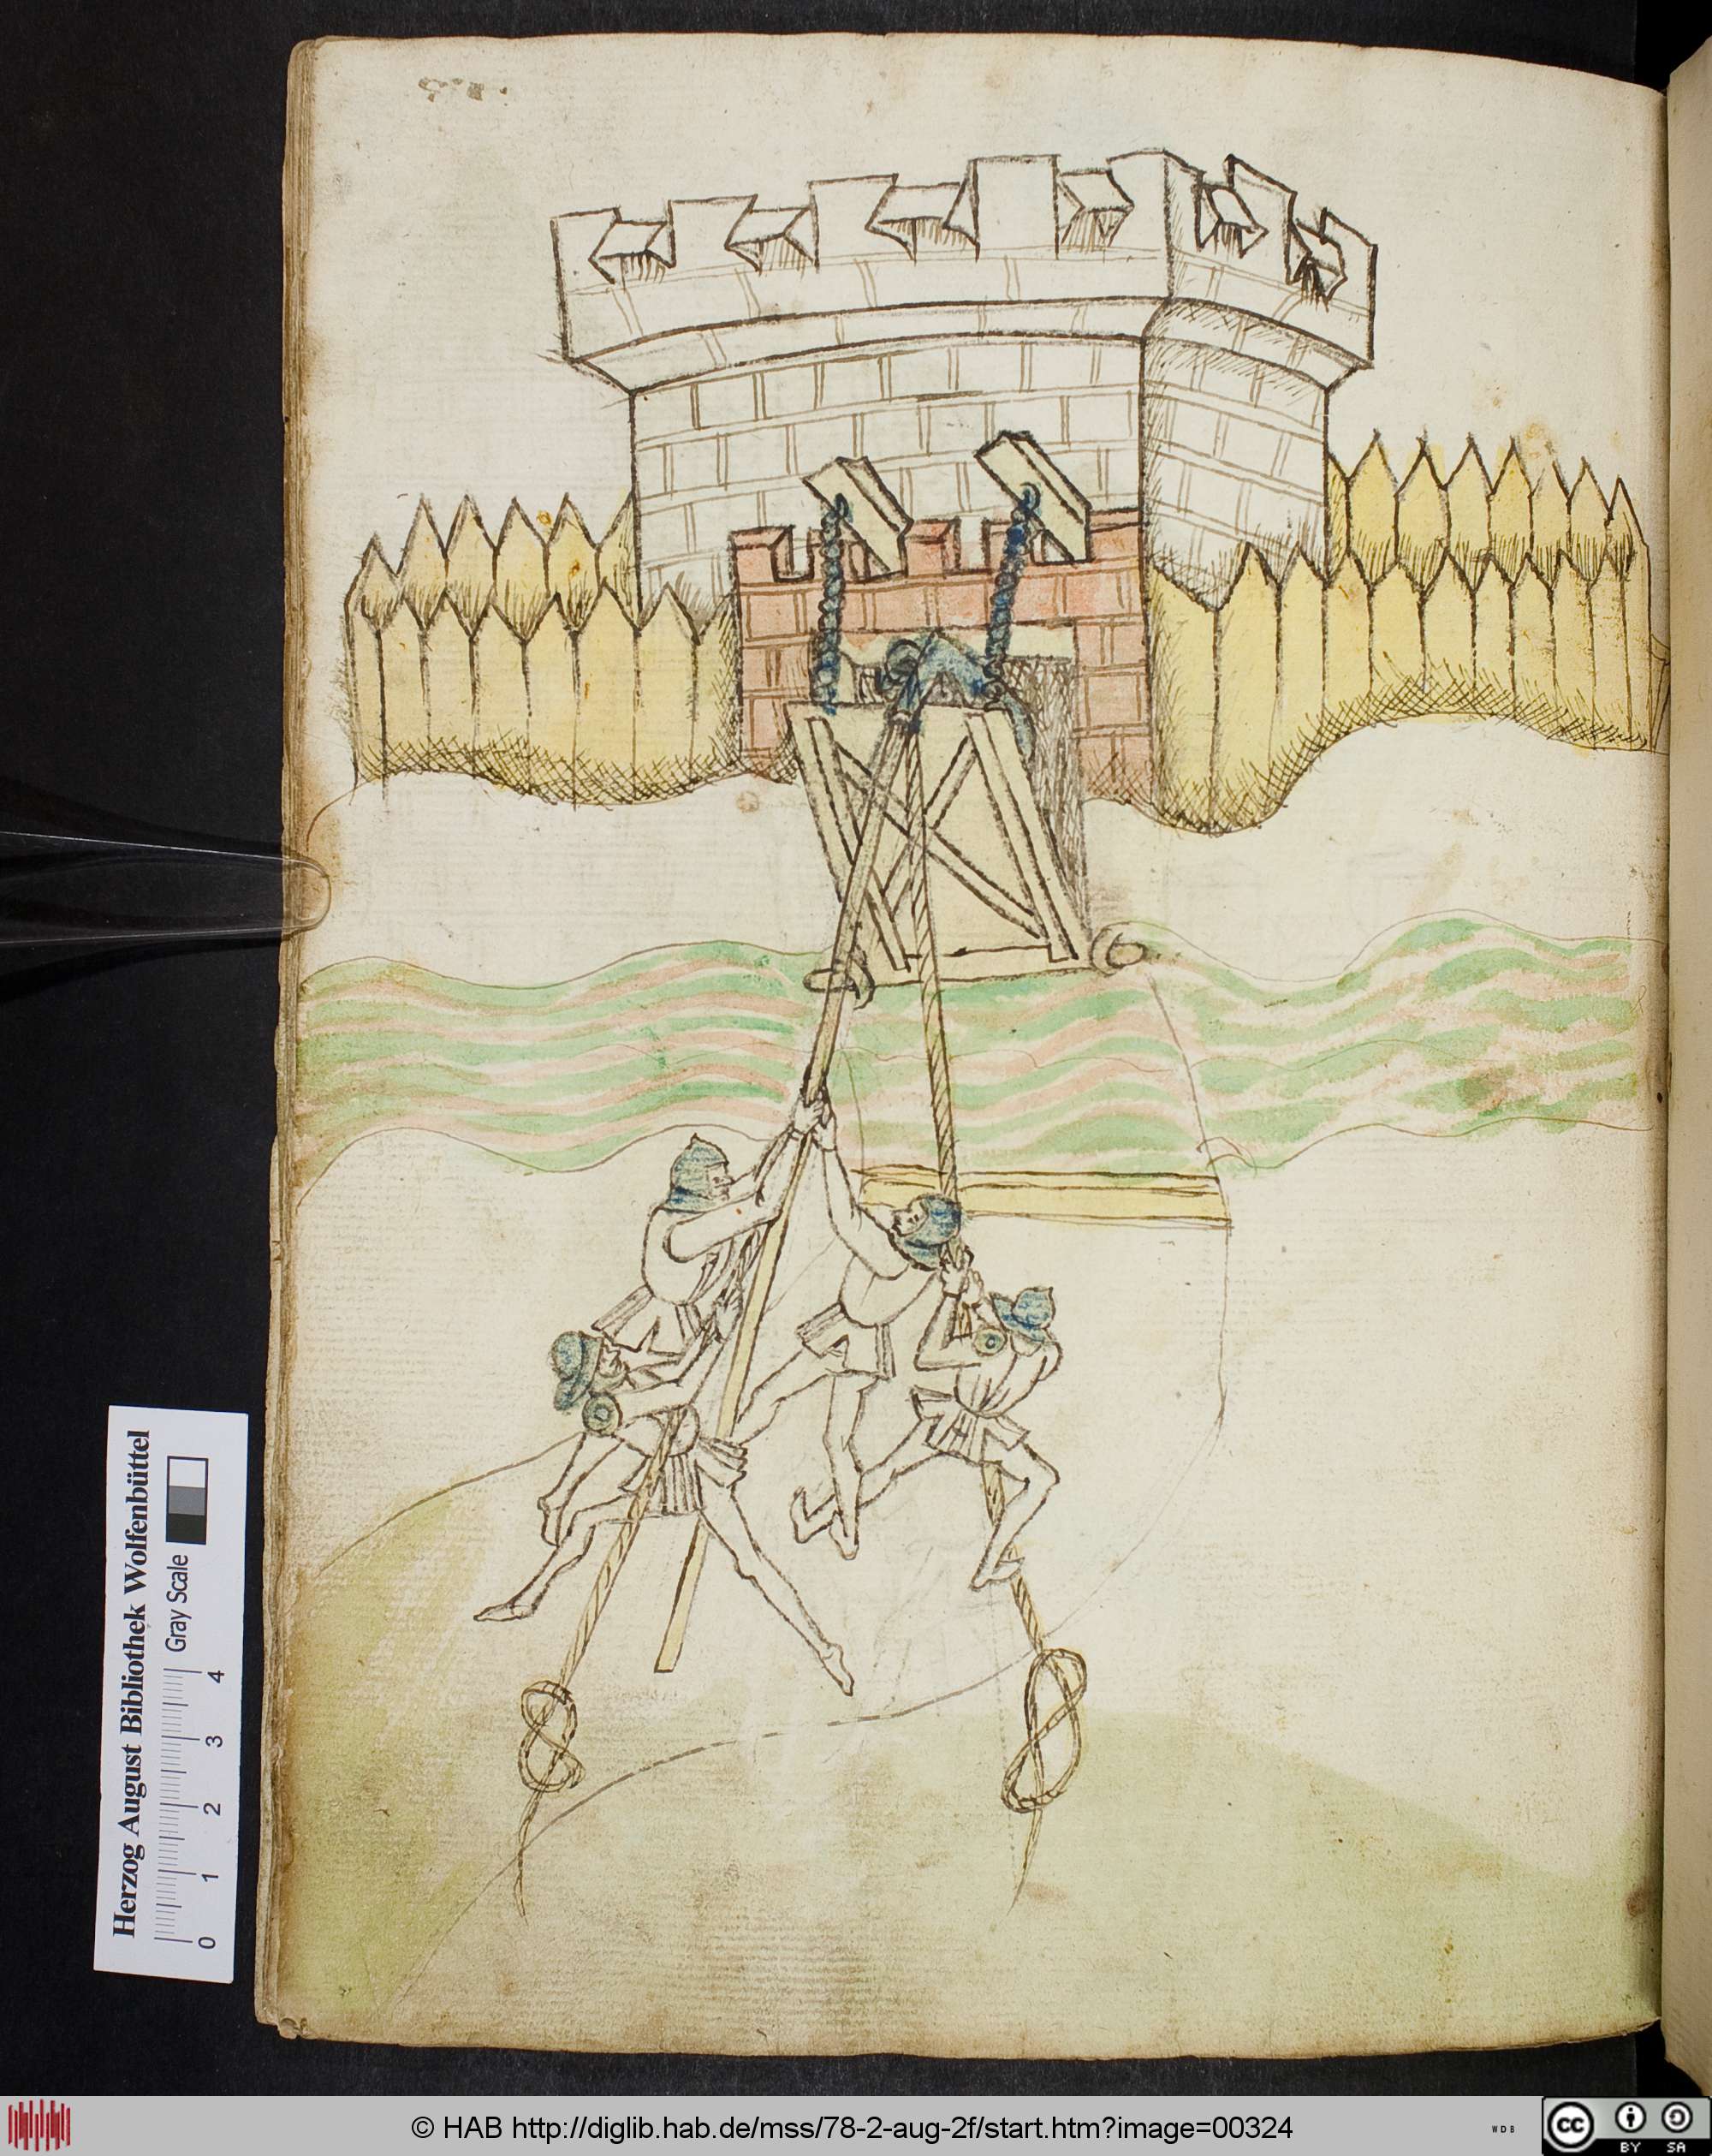 Herzog August Bibliothek Wolfenbüttel
Gray Scale
0 1 2 3 4
© HAB http://diglib.hab.de/mss/78-2-aug-2f/start.htm?image=00324
WDB
cc
BY SA